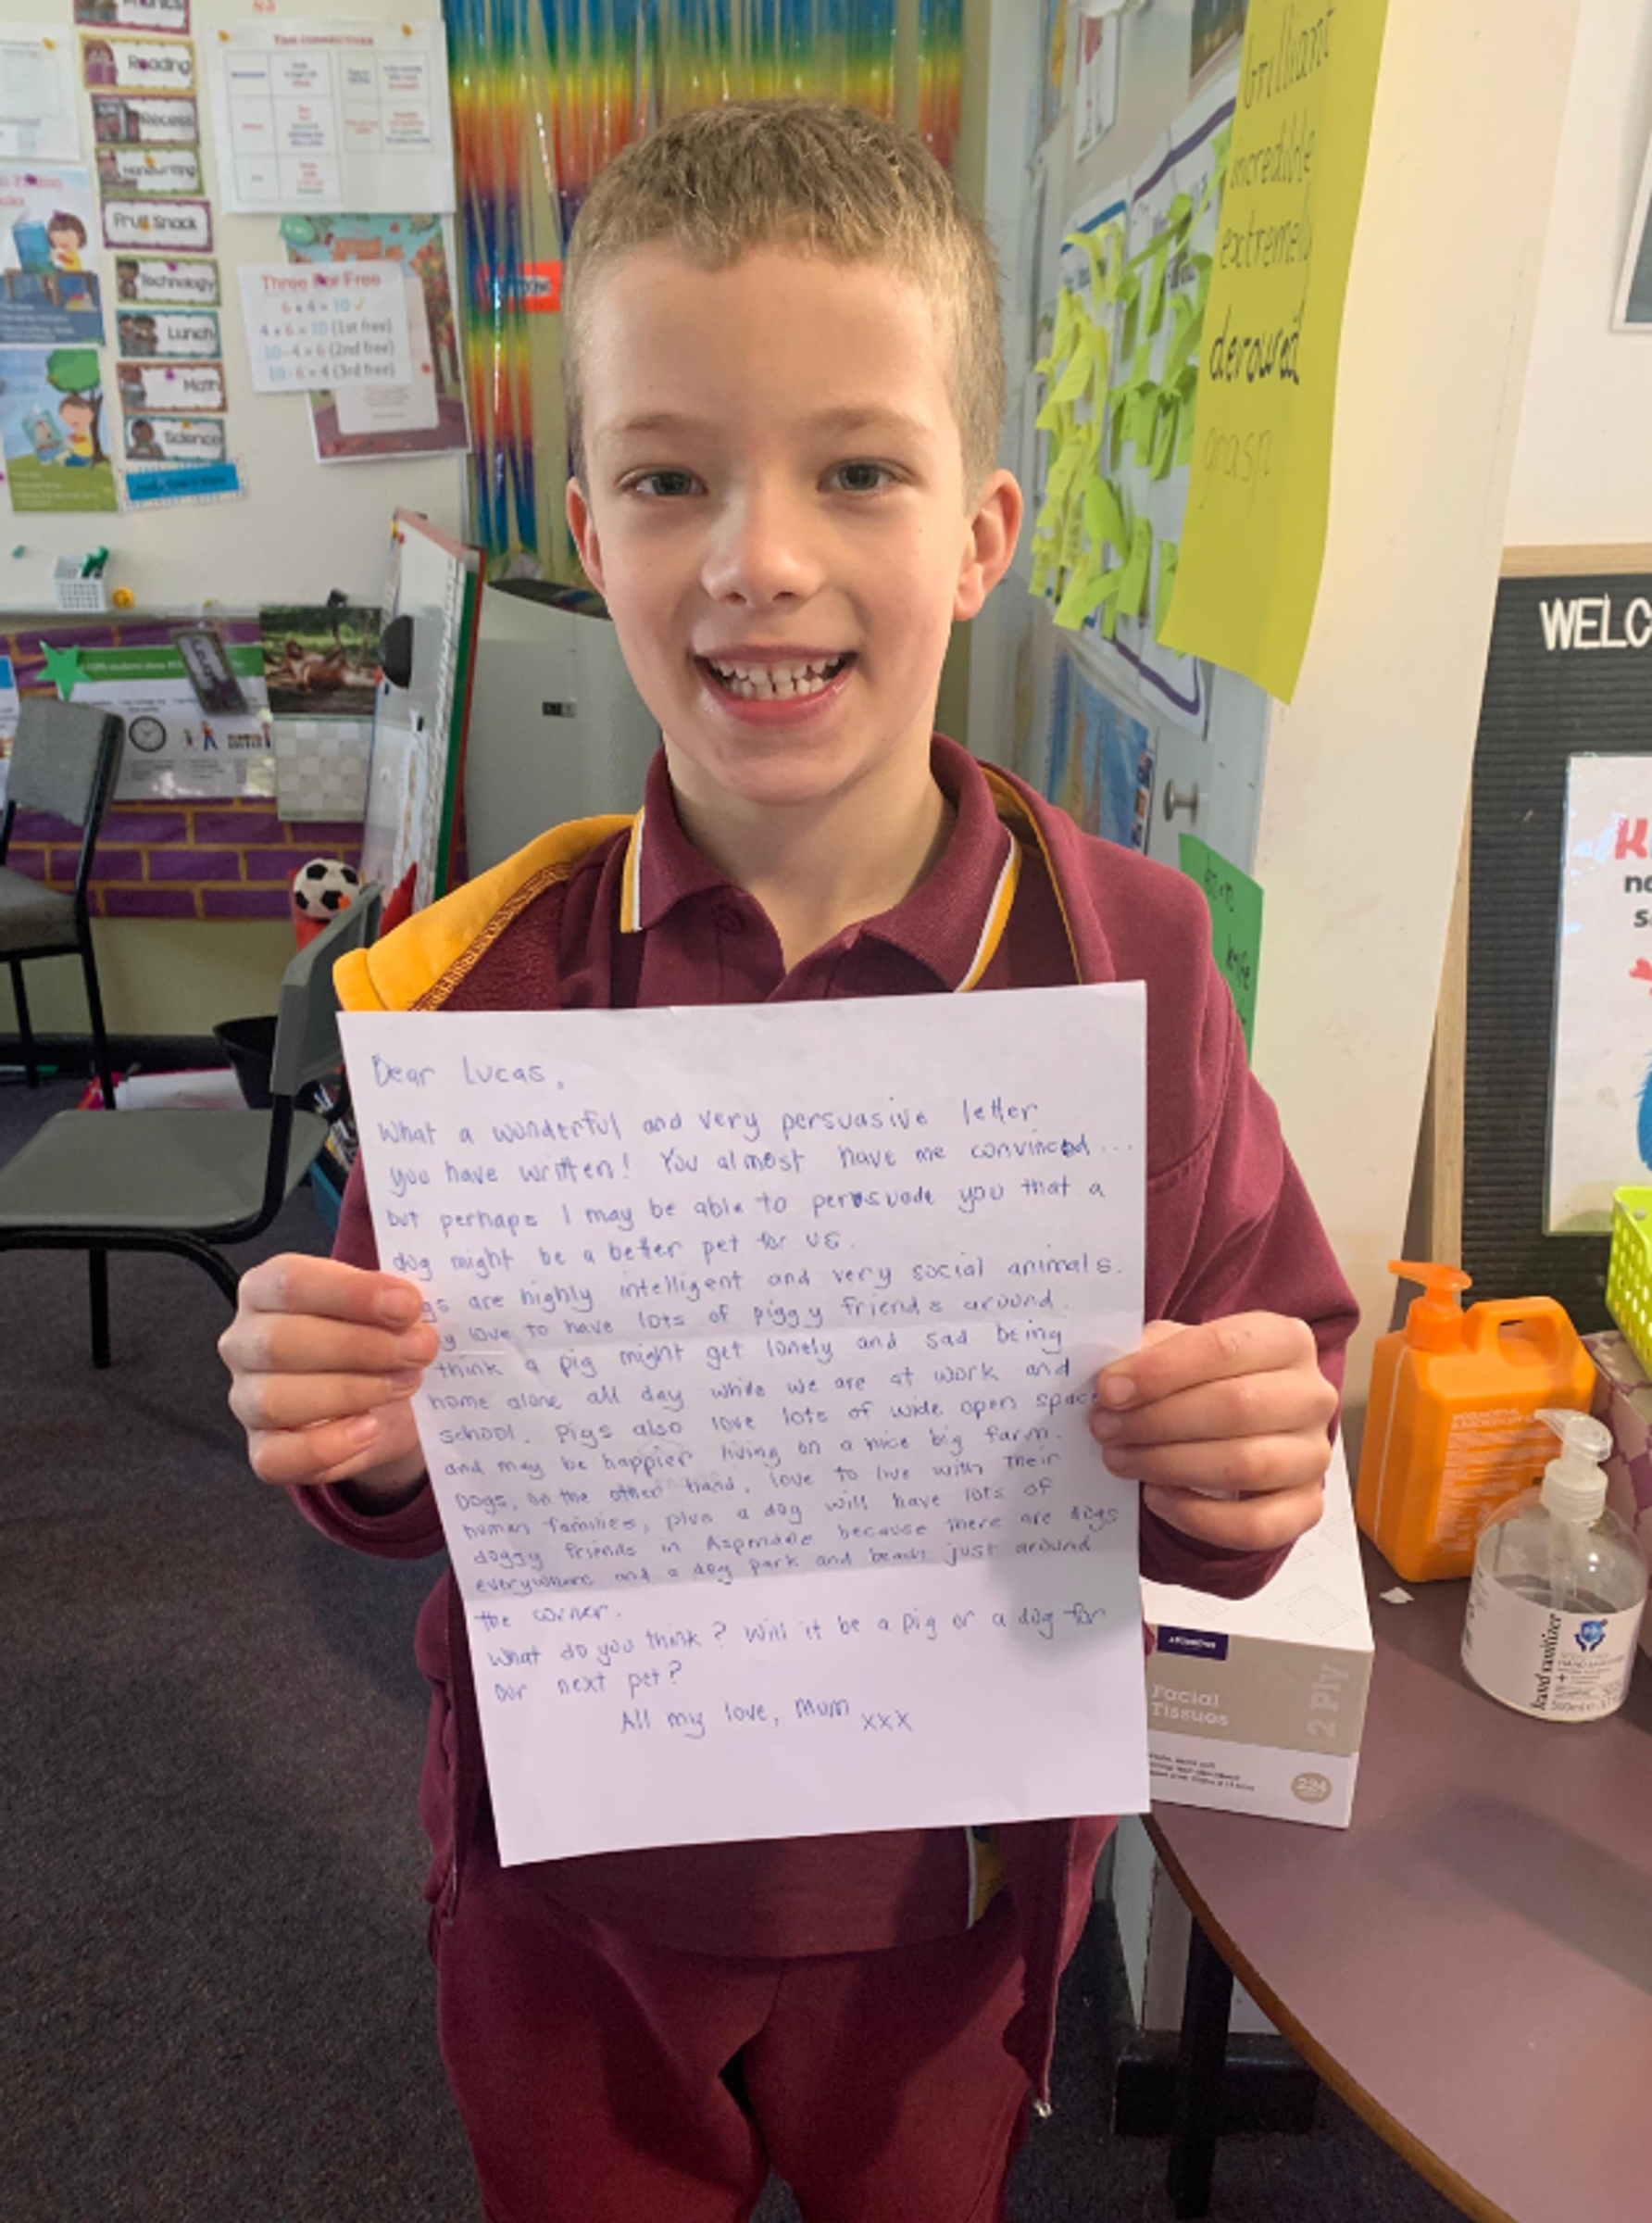 Phonics
Reading
Recess
Handwriting
Fruit Snack
Technology
Lunch
Math
Science
Three For Free
6 + 4 = 10 ✓
4 + 6 = 10 (1st free)
10 - 4 = 6 (2nd free)
10 - 6 = 4 (3rd free)
brilliant
incredible
extremely
devoured
grasp
WELC
K
Dear Lucas,
What a wonderful and very persuasive letter
you have written! You almost have me convinced...
but perhaps I may be able to persuade you that a
dog might be a better pet for us.
gs are highly intelligent and very social animals.
y love to have lots of piggy friends around.
think a pig might get lonely and sad being
home alone all day while we are at work and
school. Pigs also love lots of wide open space
and may be happier living on a nice big farm.
Dogs, on the other hand, love to live with their
human families, plus a dog will have lots of
doggy friends in Aspendale because there are dogs
everywhere and a dog park and beach just around
the corner.
What do you think? Will it be a pig or a dog for
our next pet?
All my love, Mum xxx
Facial
Tissues
2 Ply
224
hand sanitizer
500ml